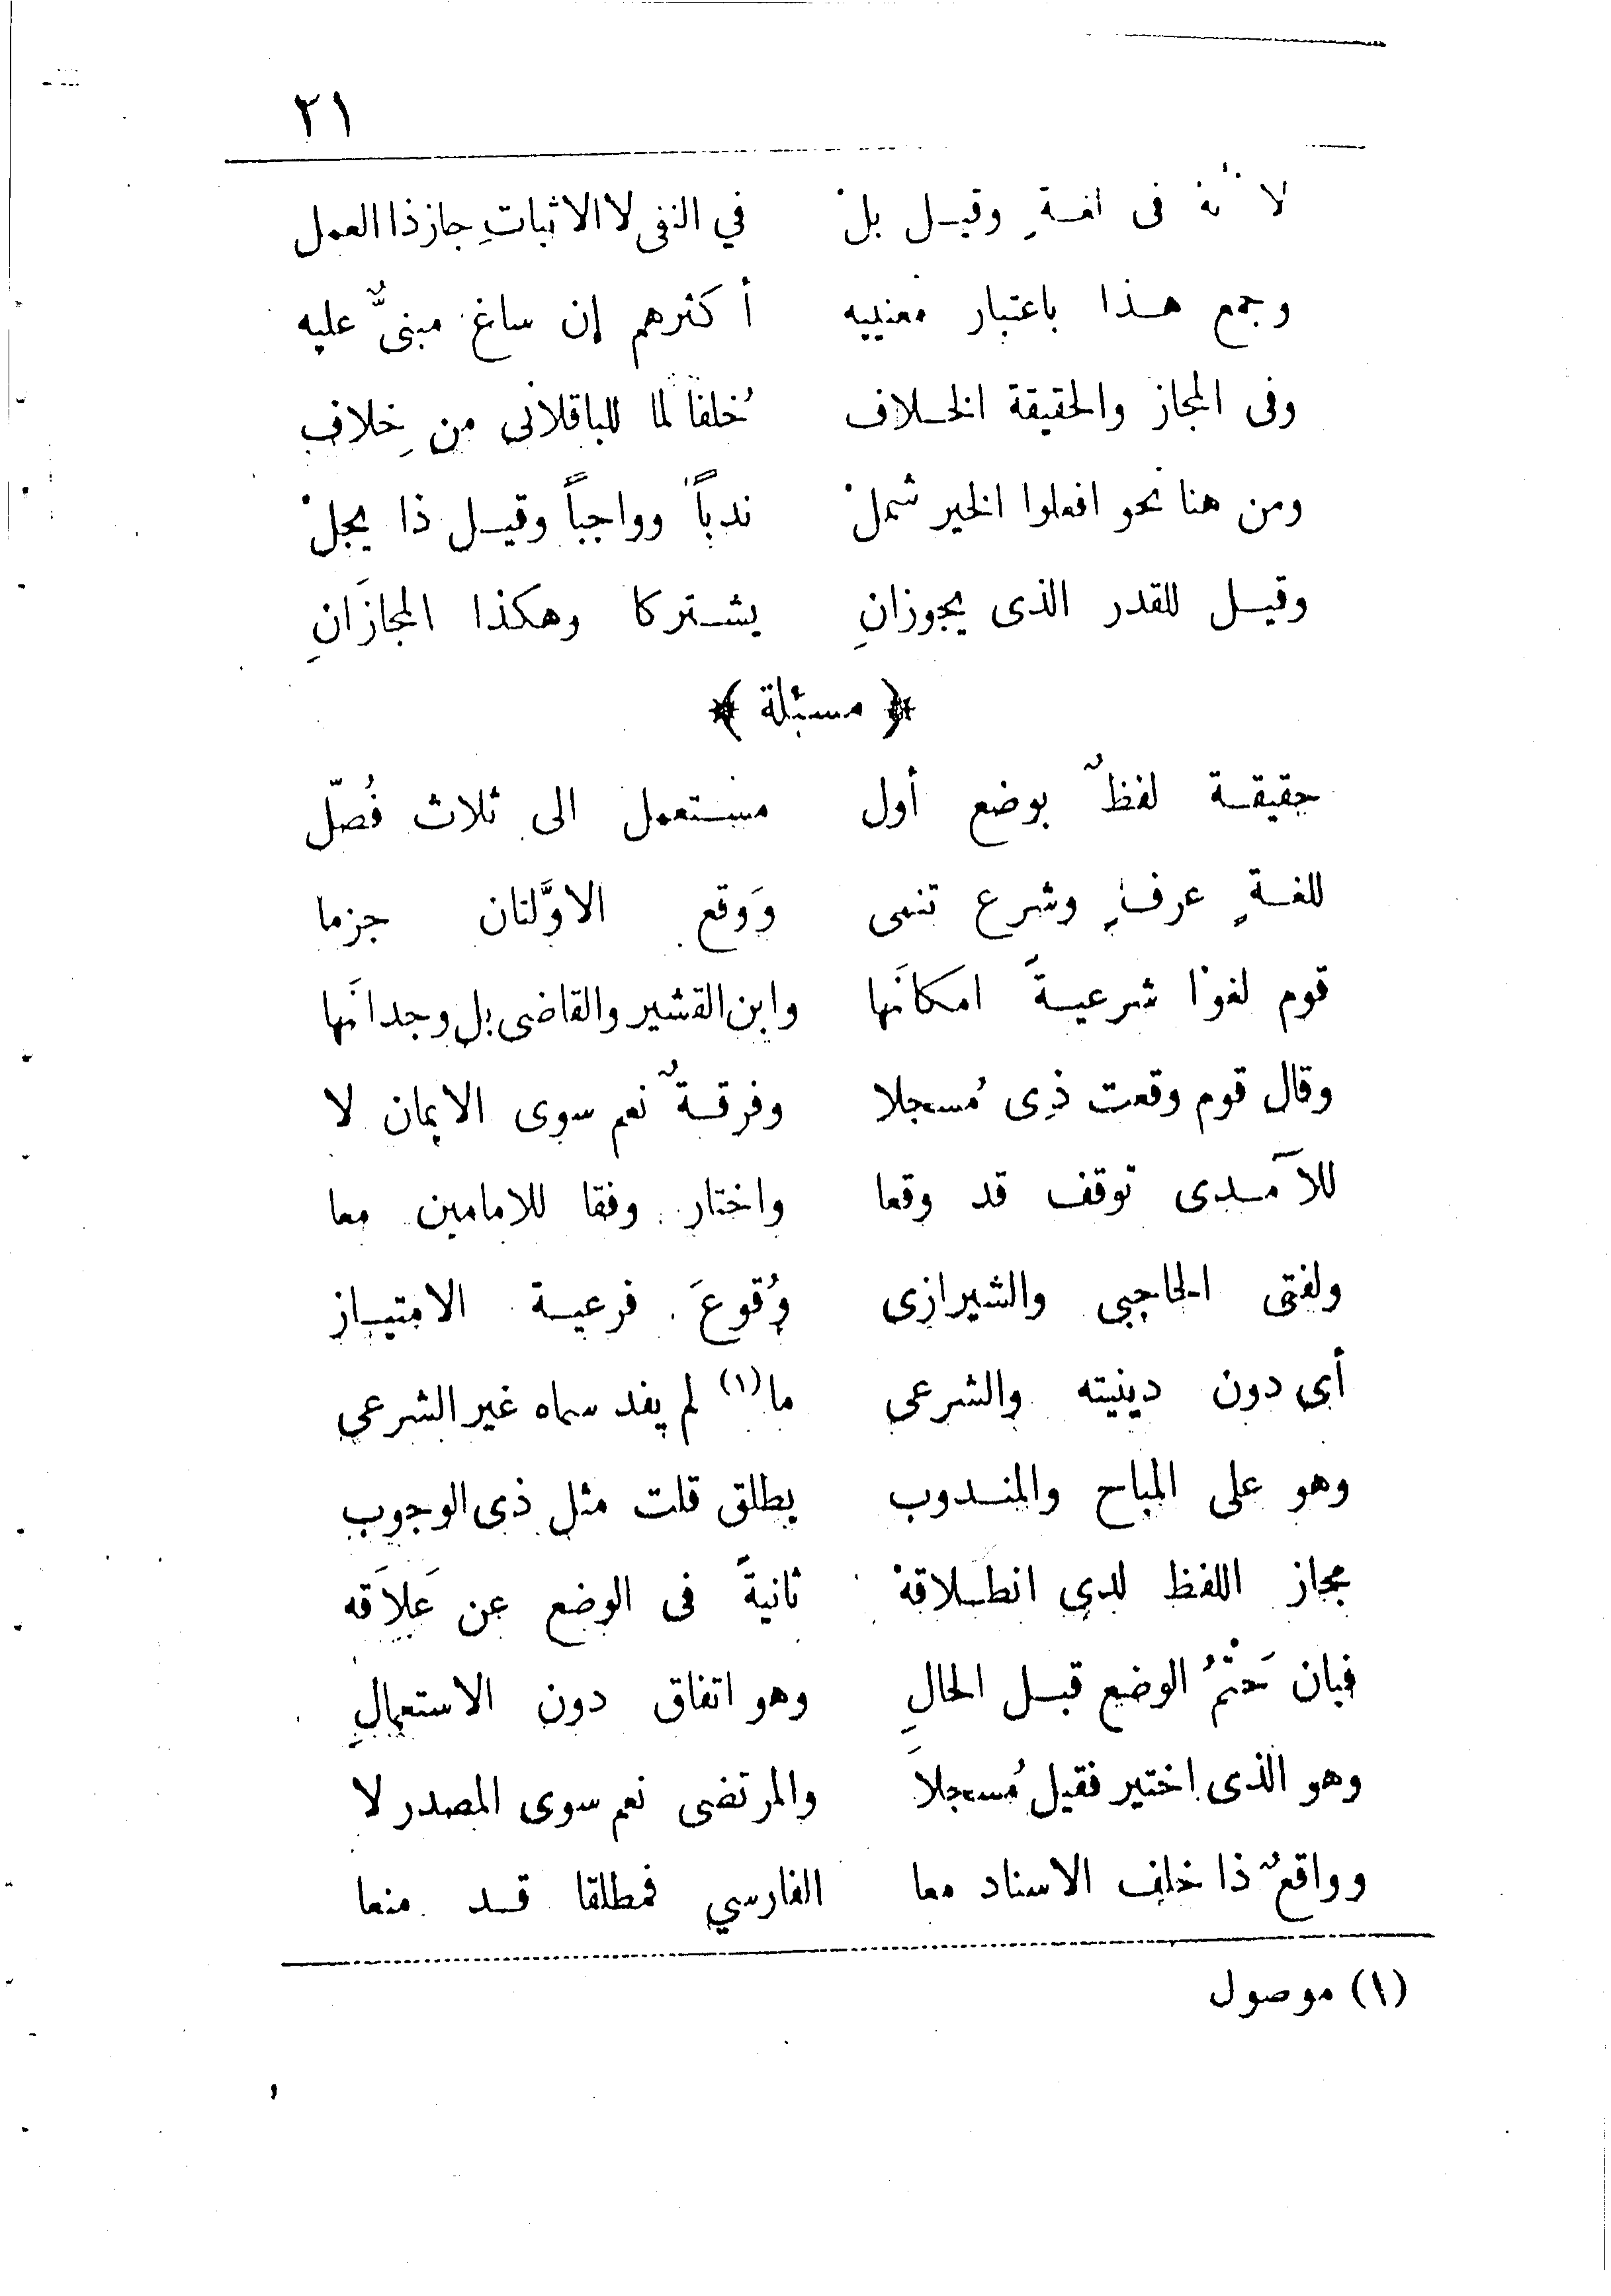 ٢١
لأنه في لغةٍ وقيل بلْ في النفى لا الاثباتِ جاز ذا العمل
وجمع هذا باعتبار معنييه أكثرهم إن ساغ مبنىٌّ عليه
وفى المجاز والحقيقة الخلاف خُلفا لما للباقلانى من خِلاف
ومن هنا نحو افعلوا الخير شملْ ندباً وواجباً وقيل ذا يجلْ
وقيل للقدر الذى يجوزانِ يشتركا وهكذا المجازَانِ
﴿ مسئلة ﴾
حقيقة لفظٌ بوضع أول مستعمل الى ثلاث فُصّل
للغةٍ عرفٍ وشرع تنمى وَوقع الاوَّلتان جزما
قوم نفوْا شرعيةً امكانَها وابن القشير والقاضى بل وجدانَها
وقال قوم وقعت ذِى مُسجلا وفرقةٌ نعم سوى الايمان لا
للآمدى توقف قد وقعا واختار وفقا للامامين معا
ولفتى الحاجبى والشيرازى وُقوعَ فرعية الامتياز
أى دون دينيته والشرعى ما(١) لم يفد سماه غير الشرعى
وهو على المباح والمندوب يطلق قلت مثل ذى الوجوب
مجاز اللفظ لدى انطلاقهْ ثانيةً فى الوضع عن عَلاَقه
فبان حَتْمُ الوضع قبل الحالِ وهو اتفاق دون الاستعمالِ
وهو الذى اختير فقيل مُسجلاَ والمرتضى نعم سوى المصدر لا
وواقعٌ ذا خلف الاسناد معا الفارسي فمطلقا قد منعا
(١) موصول